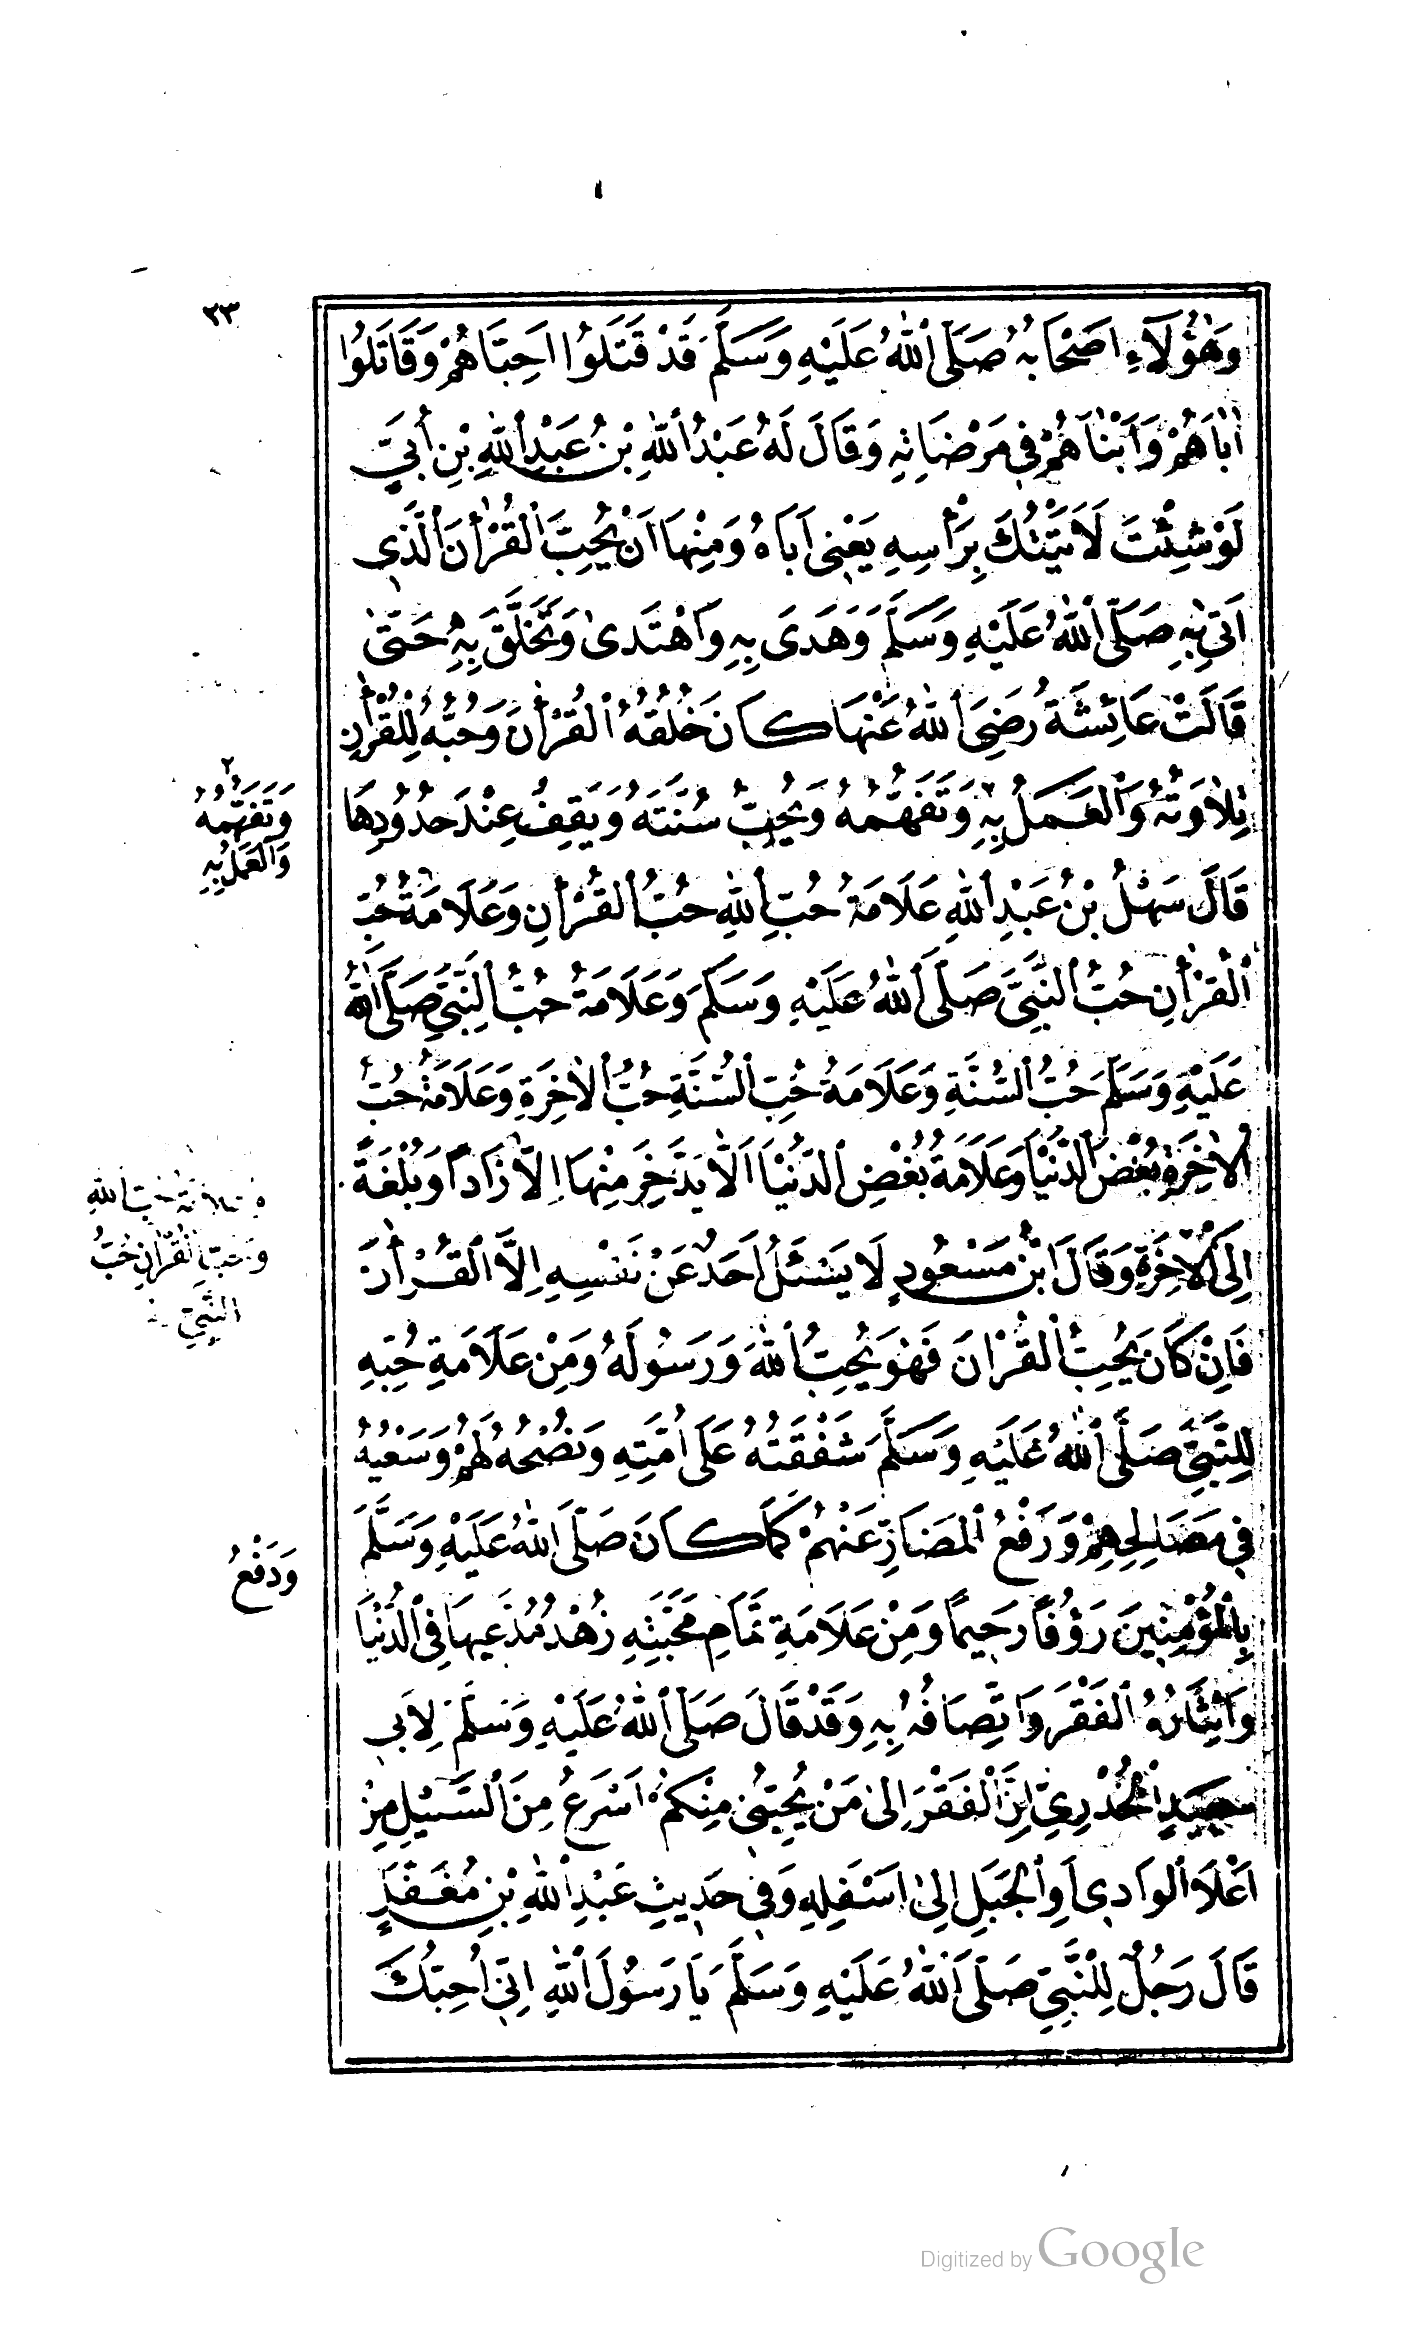 ٣٣
وَهٰؤُلَآءِ اَصْحَابُهُ صَلَّى اللّٰهُ عَلَيْهِ وَسَلَّمَ قَدْ قَتَلُوا اَحِبَّاهُمْ وَقَاتَلُوا
اٰبَاهُمْ وَاَبْنَاهُمْ فِي مَرْضَاتِهِ وَقَالَ لَهُ عَبْدُ اللّٰهِ بْنُ عَبْدِ اللّٰهِ بْنِ اُبَيٍّ
لَوْ شِئْتَ لَاَتَيْتُكَ بِرَأْسِهِ يَعْنِي اَبَاهُ وَمِنْهَا اَنْ يُحِبَّ الْقُرْاٰنَ الَّذِي
اَتٰى بِهِ صَلَّى اللّٰهُ عَلَيْهِ وَسَلَّمَ وَهَدٰى بِهِ وَاهْتَدٰى وَتَخَلَّقَ بِهِ حَتّٰى
قَالَتْ عَائِشَةُ رَضِيَ اللّٰهُ عَنْهَا كَانَ خُلُقُهُ الْقُرْاٰنَ وَحُبُّهُ لِلْقُرْاٰنِ
تِلَاوَتُهُ وَالْعَمَلُ بِهِ وَتَفَهُّمُهُ وَيُحِبُّ سُنَّتَهُ وَيَقِفُ عِنْدَ حُدُودِهَا
قَالَ سَهْلُ بْنُ عَبْدِ اللّٰهِ عَلَامَةُ حُبِّ اللّٰهِ حُبُّ الْقُرْاٰنِ وَعَلَامَةُ حُبِّ
الْقُرْاٰنِ حُبُّ النَّبِيِّ صَلَّى اللّٰهُ عَلَيْهِ وَسَلَّمَ وَعَلَامَةُ حُبِّ النَّبِيِّ صَلَّى اللّٰهُ
عَلَيْهِ وَسَلَّمَ حُبُّ السُّنَّةِ وَعَلَامَةُ حُبِّ السُّنَّةِ حُبُّ الْاٰخِرَةِ وَعَلَامَةُ حُبِّ
الْاٰخِرَةِ بُغْضُ الدُّنْيَا وَعَلَامَةُ بُغْضِ الدُّنْيَا اَلَّا يَدَّخِرَ مِنْهَا اِلَّا زَادًا وَبُلْغَةً
اِلَى الْاٰخِرَةِ وَقَالَ ابْنُ مَسْعُودٍ لَا يَسْئَلُ اَحَدٌ عَنْ نَفْسِهِ اِلَّا الْقُرْاٰنَ
فَاِنْ كَانَ يُحِبُّ الْقُرْاٰنَ فَهُوَ يُحِبُّ اللّٰهَ وَرَسُولَهُ وَمِنْ عَلَامَةِ حُبِّهِ
لِلنَّبِيِّ صَلَّى اللّٰهُ عَلَيْهِ وَسَلَّمَ شَفْقَتُهُ عَلَى اُمَّتِهِ وَنُصْحُهُ لَهُمْ وَسَعْيُهُ
فِي مَصَالِحِهِمْ وَرَفْعُ الْمَضَارِّ عَنْهُمْ كَمَا كَانَ صَلَّى اللّٰهُ عَلَيْهِ وَسَلَّمَ
بِالْمُؤْمِنِينَ رَؤُفًا رَحِيمًا وَمِنْ عَلَامَةِ تَمَامِ مَحَبَّتِهِ زُهْدُ مُدَّعِيهَا فِي الدُّنْيَا
وَاِيْثَارُهُ الْفَقْرَ وَاتِّصَافُهُ بِهِ وَقَدْ قَالَ صَلَّى اللّٰهُ عَلَيْهِ وَسَلَّمَ لِاَبِي
سَعِيدٍ الْخُدْرِيِّ اِنَّ الْفَقْرَ اِلٰى مَنْ يُحِبُّنِي مِنْكُمْ اَسْرَعُ مِنَ السَّيْلِ مِنْ
اَعْلَا الْوَادِي اَوِ الْجَبَلِ اِلٰى اَسْفَلِهِ وَفِي حَدِيثِ عَبْدِ اللّٰهِ بْنِ مُغَفَّلٍ
قَالَ رَجُلٌ لِلنَّبِيِّ صَلَّى اللّٰهُ عَلَيْهِ وَسَلَّمَ يَا رَسُولَ اللّٰهِ اِنِّي اُحِبُّكَ
٢
وَتَفَهُّمُهُ
وَالْعَمَلُ بِهِ
حُبِّ اللّٰهِ
وَحُبِّ الْقُرْاٰنِ حُبُّ
النَّبِيِّ
وَدَفْعُ
Digitized by Google